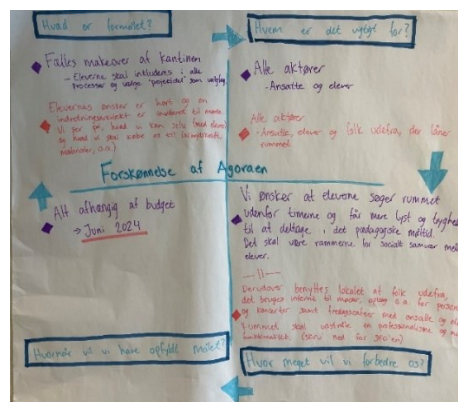 Hvad er formålet?
Fælles makeover af kantinen
- Eleverne skal inkluderes i alle
processer og vælge "projektdel" som
Elevernes ønsker er hørt og en
indretningsarkitekt er inviteret til møde.
Vi ser på, hvad vi kan selv (med elever)
og hvad vi skal købe os til
materialer, o.a.)
Hvem er det vigtigt for?
Alle aktører
- Ansatte og elever
Alle aktører
- Ansatte, elever og folk udefra, der låner
rummet.
Forskønnelse af Agoraen
Alt afhængig af budget
→ Juni 2024
Vi ønsker at eleverne søger rummet
udenfor timerne og får mere lyst og tryghed
til at deltage i det pædagogiske måltid.
Det skal være rammerne for socialt samvær med
elever.
— 11 —
Derudover benyttes lokalet af folk udefra,
det bruges internt til møder, oplæg o.a. for personale
og koncerter samt fredagscafeer med ansatte og
Rummet skal udstråle en professionalisme og
Hvornår vil vi have opfyldt målet?
Hvor meget vil vi forbedre os?